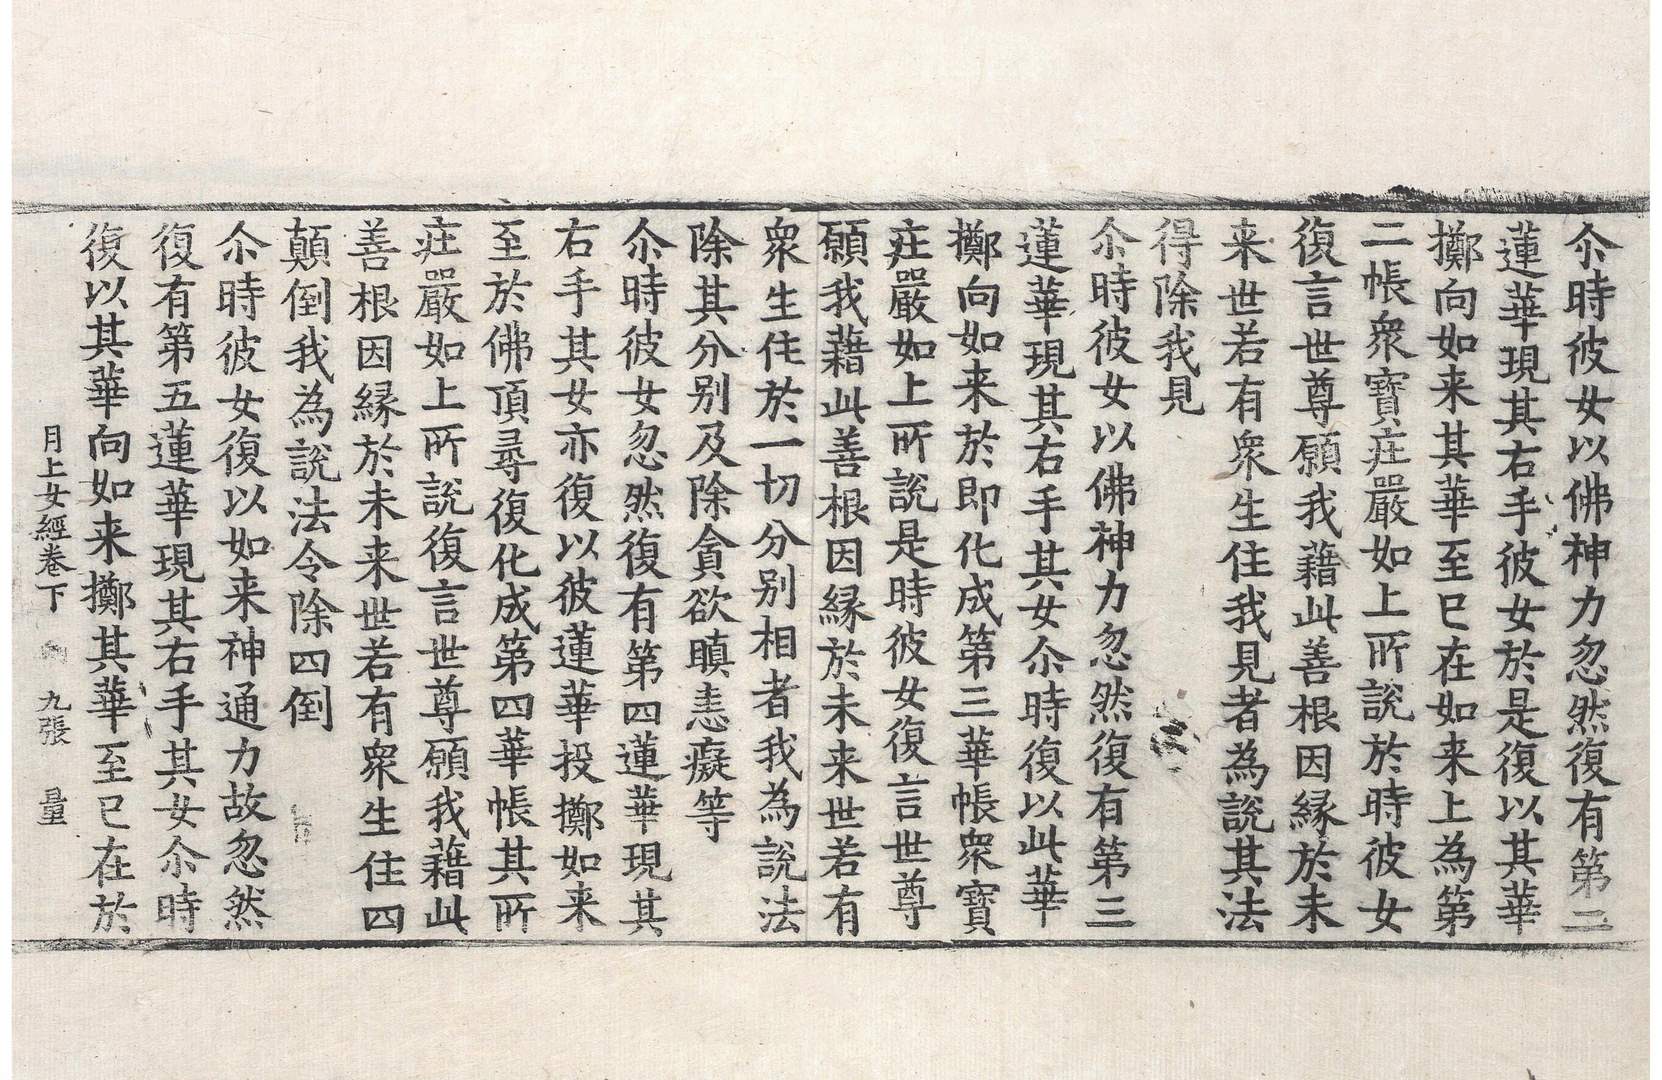 尒時彼女以佛神力忽然復有第二
蓮華現其右手彼女於是復以其華
擲向如来其華至已在如来上為第
二帳衆寶莊嚴如上所說於時彼女
復言世尊願我藉此善根因緣於未
来世若有衆生住我見者為說其法
得除我見
尒時彼女以佛神力忽然復有第三
蓮華現其右手其女尒時復以此華
擲向如来於即化成第三華帳衆寶
莊嚴如上所說是時彼女復言世尊
願我藉此善根因緣於未来世若有
衆生住於一切分別相者我為說法
除其分別及除貪欲瞋恚癡等
尒時彼女忽然復有第四蓮華現其
右手其女亦復以彼蓮華投擲如来
至於佛頂尋復化成第四華帳其所
莊嚴如上所說復言世尊願我藉此
善根因緣於未来世若有衆生住四
顛倒我為說法令除四倒
尒時彼女復以如来神通力故忽然
復有第五蓮華現其右手其女尒時
復以其華向如来擲其華至已在於
月上女經卷下 九張 量